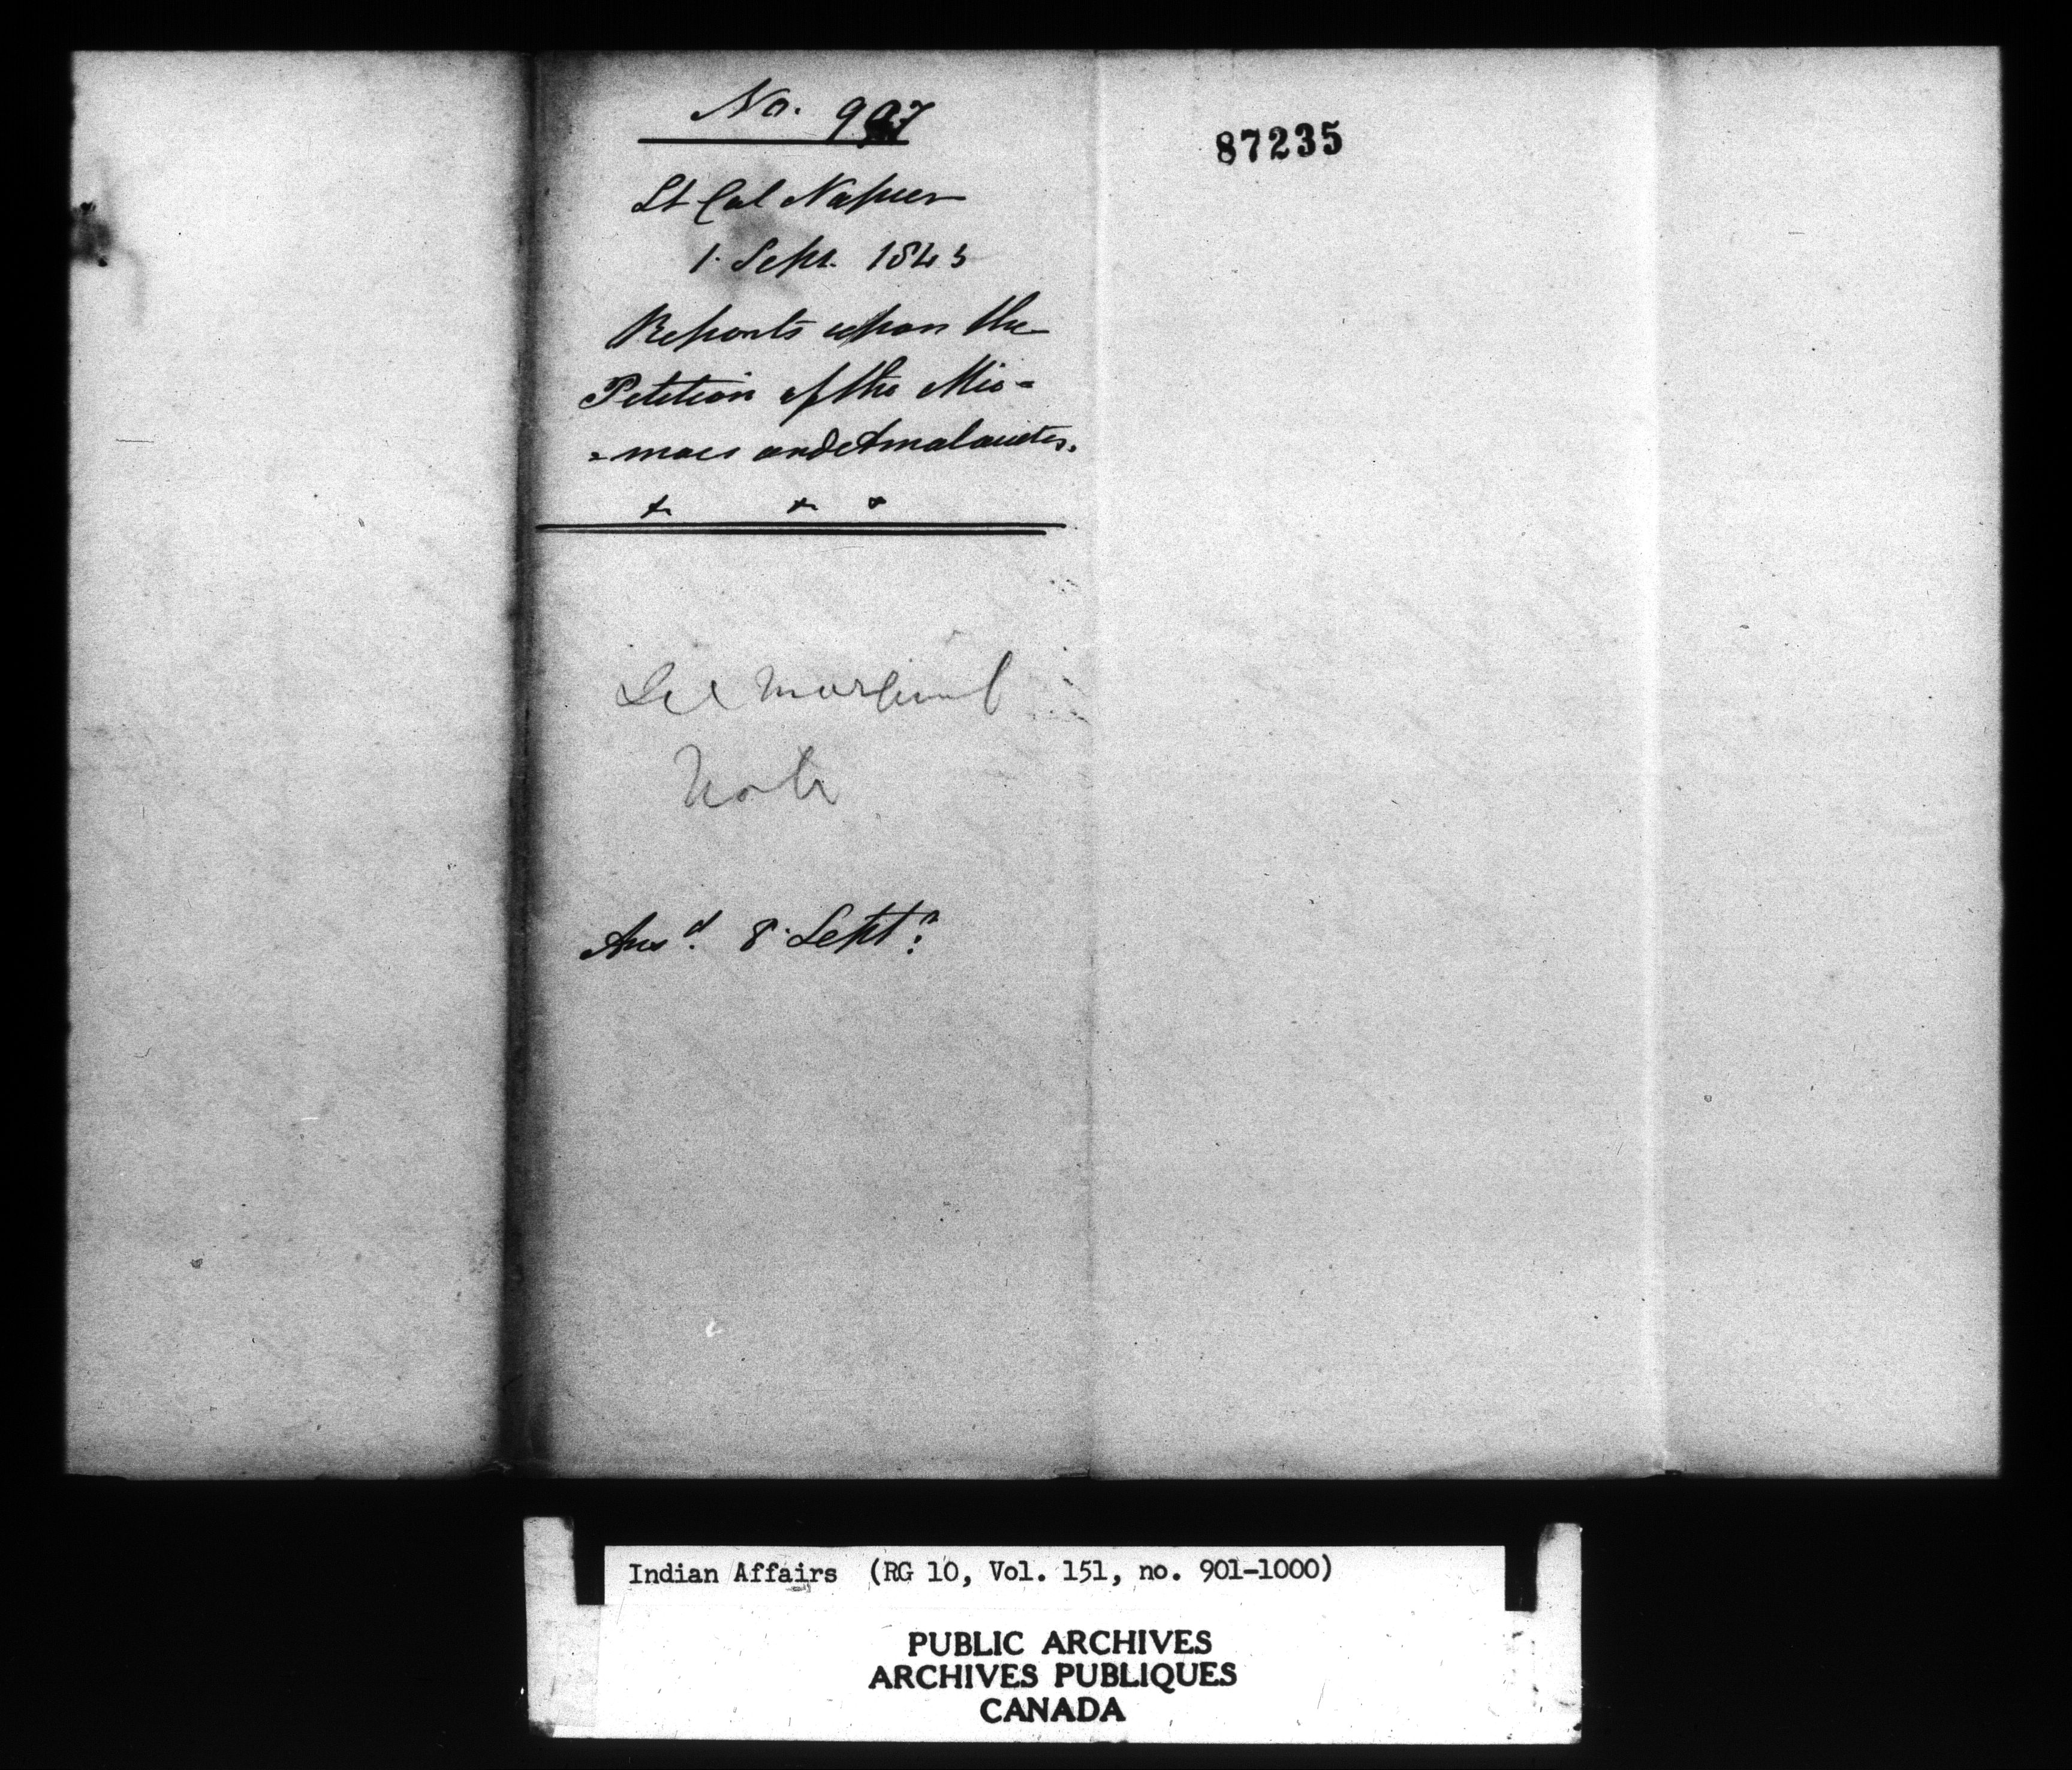 No. 997
Lt Col Napier
1. Sept. 1845
Reports upon the
Petition of the Mic=
=macs and Amalacites.
87235
See Marginal
Note
Ansd. 8. Septr:
Indian Affairs (RG 10, Vol. 151, no. 901-1000)
PUBLIC ARCHIVES
ARCHIVES PUBLIQUES
CANADA